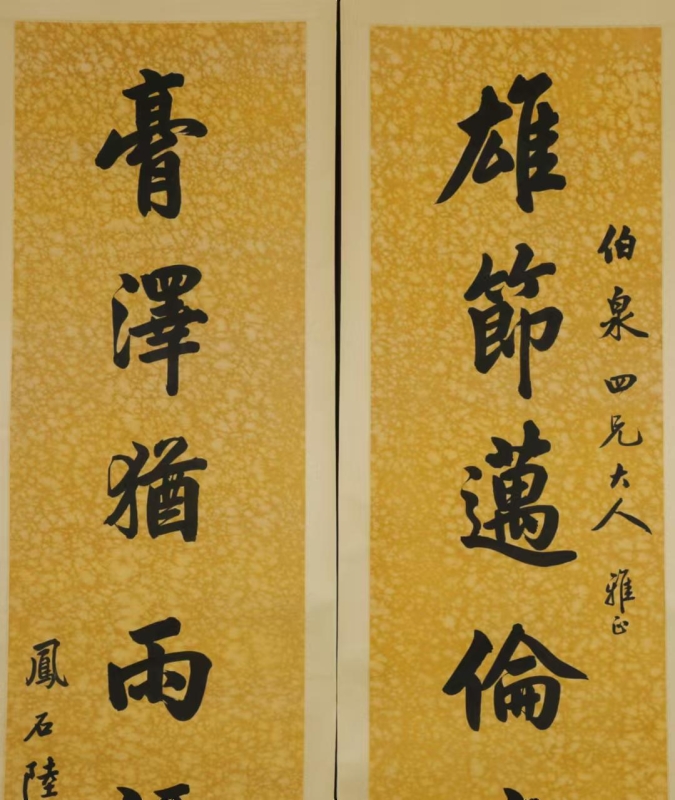 雄節邁倫
伯泉四兄大人雅正
膏澤猶雨
鳳石陸